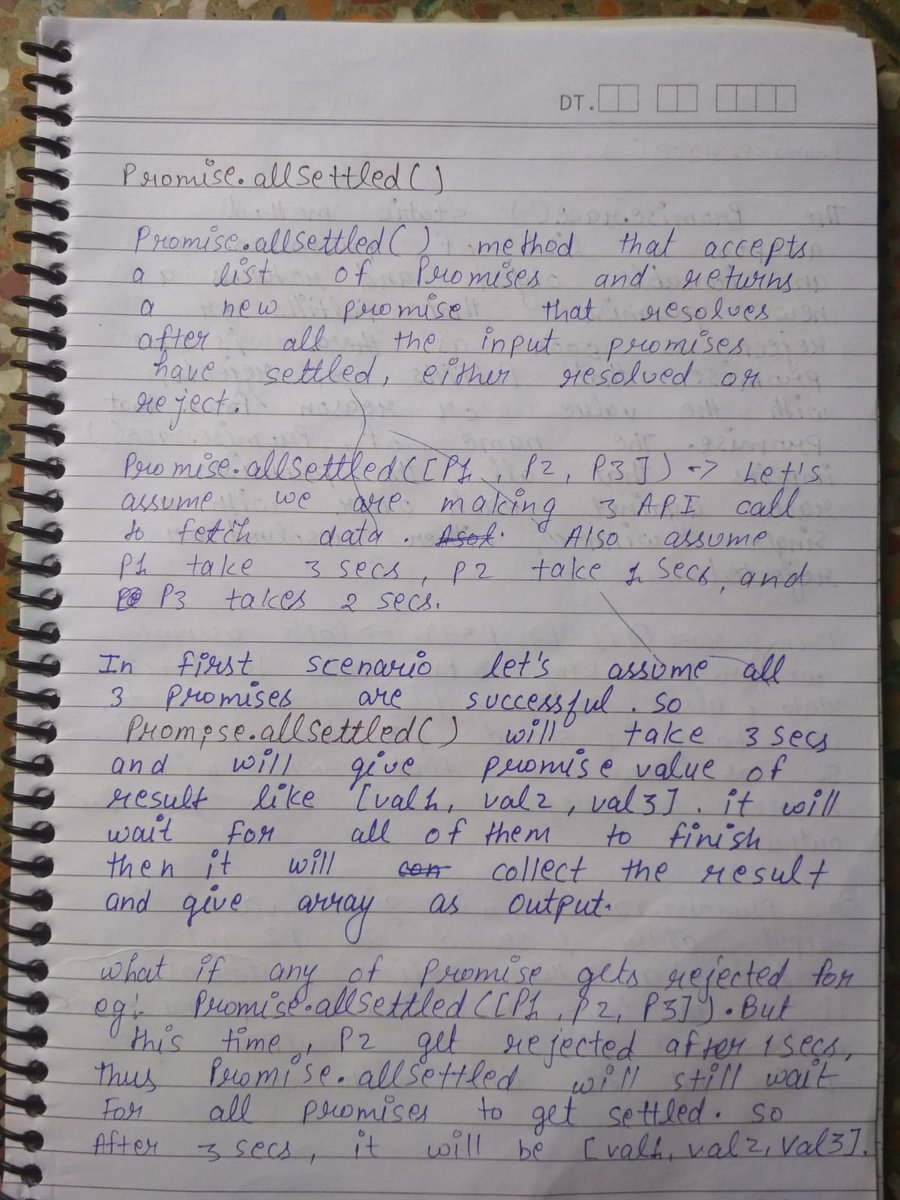 DT.
Promise.allSettled()
Promise.allSettled() method that accepts
a list of Promises and returns
a new promise that resolves
after all the input promises
have settled, either resolved or
reject.
Promise.allSettled([P1, P2, P3]) -> Let's
assume we are making 3 API call
to fetch data. Also assume
P1 take 3 secs, P2 take 1 secs, and
P3 takes 2 secs.
In first scenario let's assume all
3 promises are successful. so
Promise.allSettled() will take 3 secs
and will give promise value of
result like [val1, val2, val3]. it will
wait for all of them to finish
then it will con collect the result
and give array as output.
what if any of Promise gets rejected for
eg: Promise.allSettled([P1, P2, P3]). But
this time, P2 get rejected after 1 secs,
thus Promise.allSettled will still wait
For all promises to get settled. so
After 3 secs, it will be [val1, val2, val3].